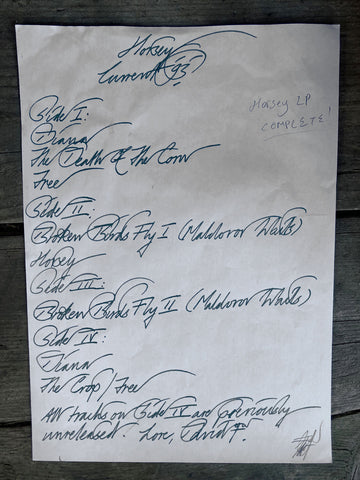 Horsey
Current '93'
Horsey LP
COMPLETE!
Side I:
Diana
The Death of the Corn
Tree
Side II:
Broken Birds Fly I (Maldoror Waits)
Horsey
Side III:
Broken Birds Fly II (Maldoror Waits)
Side IV:
Diana
The Crop / Tree
All tracks on Side IV are previously
unreleased. Love, David T.